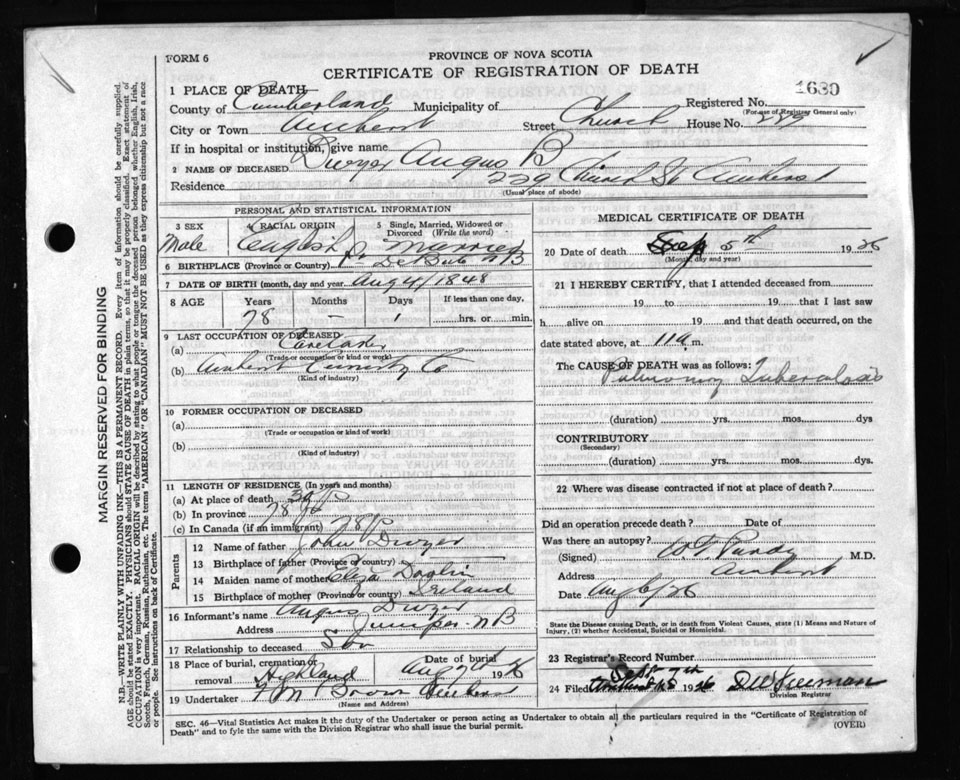 FORM 6
PROVINCE OF NOVA SCOTIA
CERTIFICATE OF REGISTRATION OF DEATH
1 PLACE OF DEATH
1630
County of Cumberland Municipality of Registered No.
(For use of Registrar General only)
City or Town Amherst Street Church House No. 229
If in hospital or institution, give name
2 NAME OF DECEASED Dwyer Angus B
Residence 229 Church St Amherst
(Usual place of abode)
PERSONAL AND STATISTICAL INFORMATION
3 SEX Male
4 RACIAL ORIGIN English
5 Single, Married, Widowed or Divorced (Write the word) Married
6 BIRTHPLACE (Province or Country) Pt De Bute NB
7 DATE OF BIRTH (month, day and year) Aug 4/1848
8 AGE Years Months Days If less than one day,
78 — 1 hrs. or min.
9 LAST OCCUPATION OF DECEASED
(a) Caretaker
(Trade or occupation or kind of work)
(b) Amherst Co
(Kind of industry)
10 FORMER OCCUPATION OF DECEASED
(a)
(Trade or occupation or kind of work)
(b)
(Kind of industry)
11 LENGTH OF RESIDENCE (In years and months)
(a) At place of death
(b) In province 78
(c) In Canada (if an immigrant) 78
Parents
12 Name of father John Dwyer
13 Birthplace of father (Province or country) —
14 Maiden name of mother Eliza
15 Birthplace of mother (Province or country) Ireland
16 Informant's name Angus Dwyer
Address Juniper NB
17 Relationship to deceased Son
18 Place of burial, cremation or removal Highland Date of burial Aug 7th 1926
19 Undertaker Brown Amherst
(Name and Address)
MEDICAL CERTIFICATE OF DEATH
20 Date of death 5th 1926
(Month, day and year)
21 I HEREBY CERTIFY, that I attended deceased from
19 to 19 that I last saw
h alive on 19 and that death occurred, on
date stated above, at 11 a m.
The CAUSE OF DEATH was as follows:
Pulmonary Tuberculosis
(duration) yrs. mos. dys
CONTRIBUTORY
(Secondary)
(duration) yrs. mos. dys.
22 Where was disease contracted if not at place of death?
Did an operation precede death? Date of
Was there an autopsy?
(Signed) Purdy M.D.
Address Amherst
Date Aug 6/26
State the Disease causing Death, or in death from Violent Causes, state (1) Means and Nature of Injury, (2) whether Accidental, Suicidal or Homicidal.
23 Registrar's Record Number
24 Filed 1926
Division Registrar
SEC. 46—Vital Statistics Act makes it the duty of the Undertaker or person acting as Undertaker to obtain all the particulars required in the "Certificate of Registration of
Death" and to fyle the same with the Division Registrar who shall issue the burial permit.
(OVER)
MARGIN RESERVED FOR BINDING
N.B.—WRITE PLAINLY WITH UNFADING INK—THIS IS A PERMANENT RECORD. Every item of information should be carefully supplied.
AGE should be stated EXACTLY. PHYSICIANS should STATE CAUSE OF DEATH in plain terms, so that it may be properly classified. Exact statement of
OCCUPATION is very important. RACIAL ORIGIN will be described by stating to what people or tongue the deceased person belonged whether English, Irish,
Scotch, French, German, Russian, Ruthenian, etc. The terms "AMERICAN" OR "CANADIAN" MUST NOT BE USED as they express citizenship but not a race
of people. See instructions on back of Certificate.